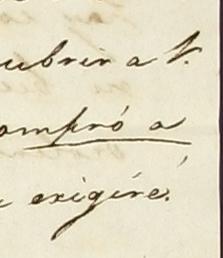 ubrir a V.
ompró a
exigiré.